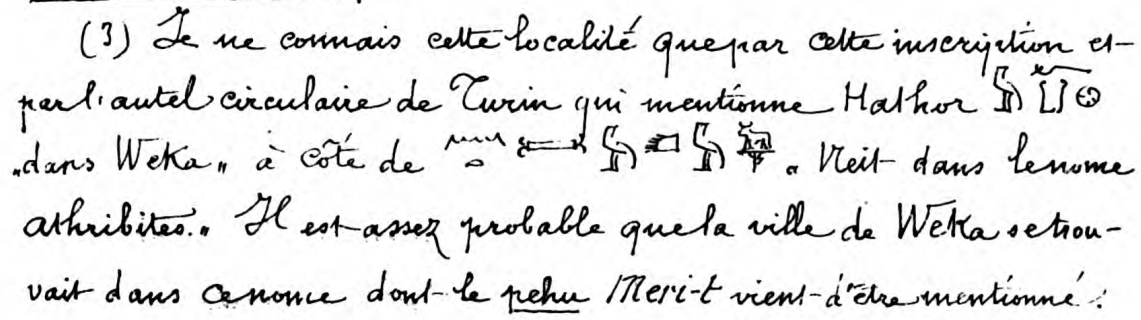 (3) Je ne connais cette localité que par cette inscription et
par l'autel circulaire de Turin qui mentionne Hathor
„dans Weka„ à côté de „Neit dans le nome
athribites.„ Il est assez probable que la ville de Weka se trou-
vait dans ce nome dont le pehu Meri-t vient d'être mentionné.